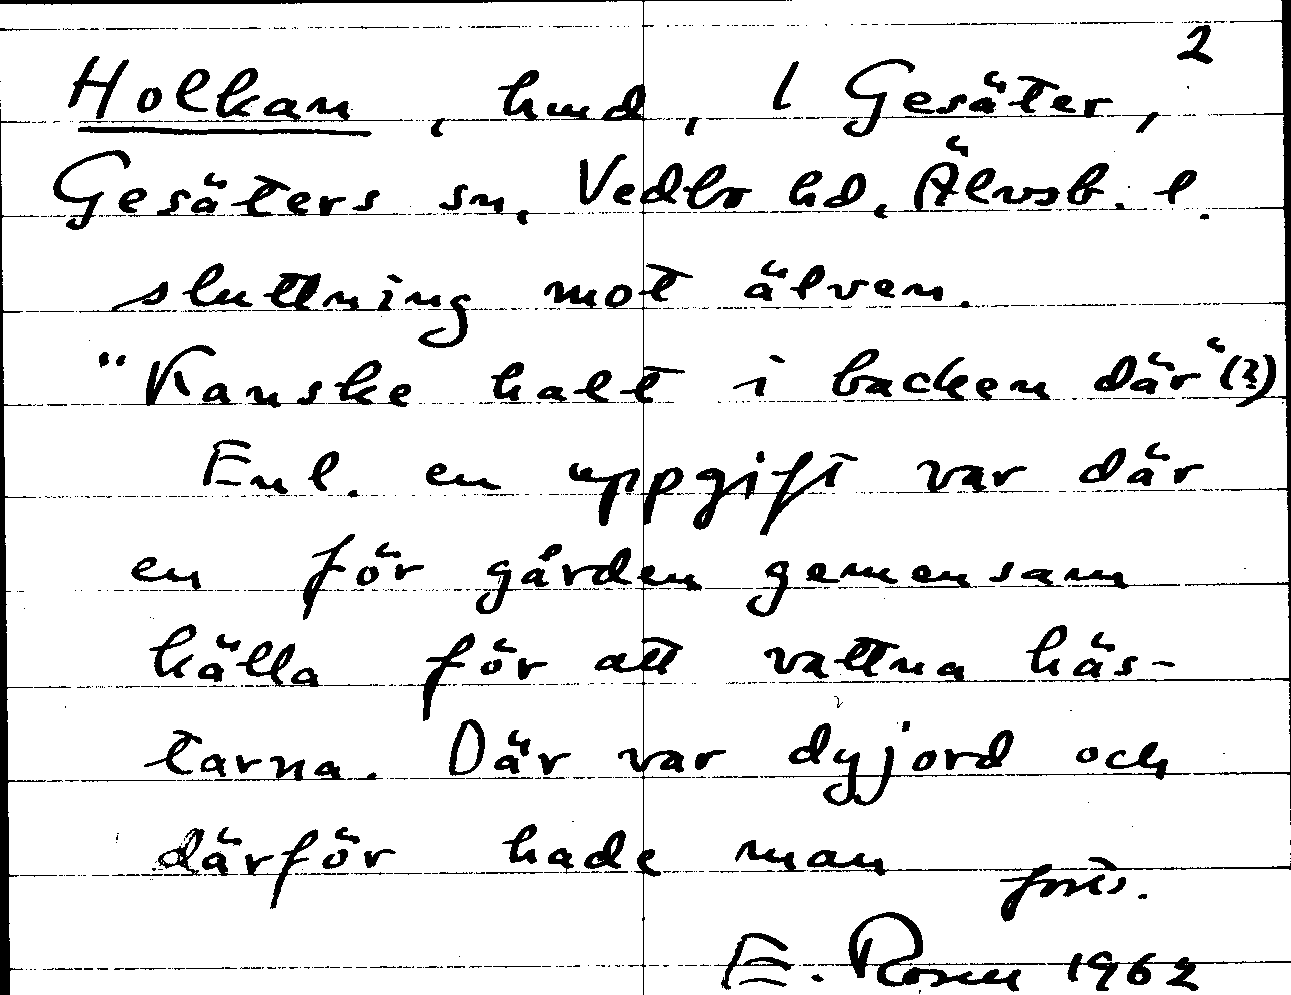 2
Holkan, hmd, 1 Gesäter,
Gesäters sn, Vedbo hd, Älvsb. l.
sluttning mot älven.
"Kanske halt i backen där" (?)
Enl. en uppgift var där
en för gården gemensam
källa för att vattna häs-
tarna. Där var dyjord och
därför hade man
forts.
E. Rosen 1962